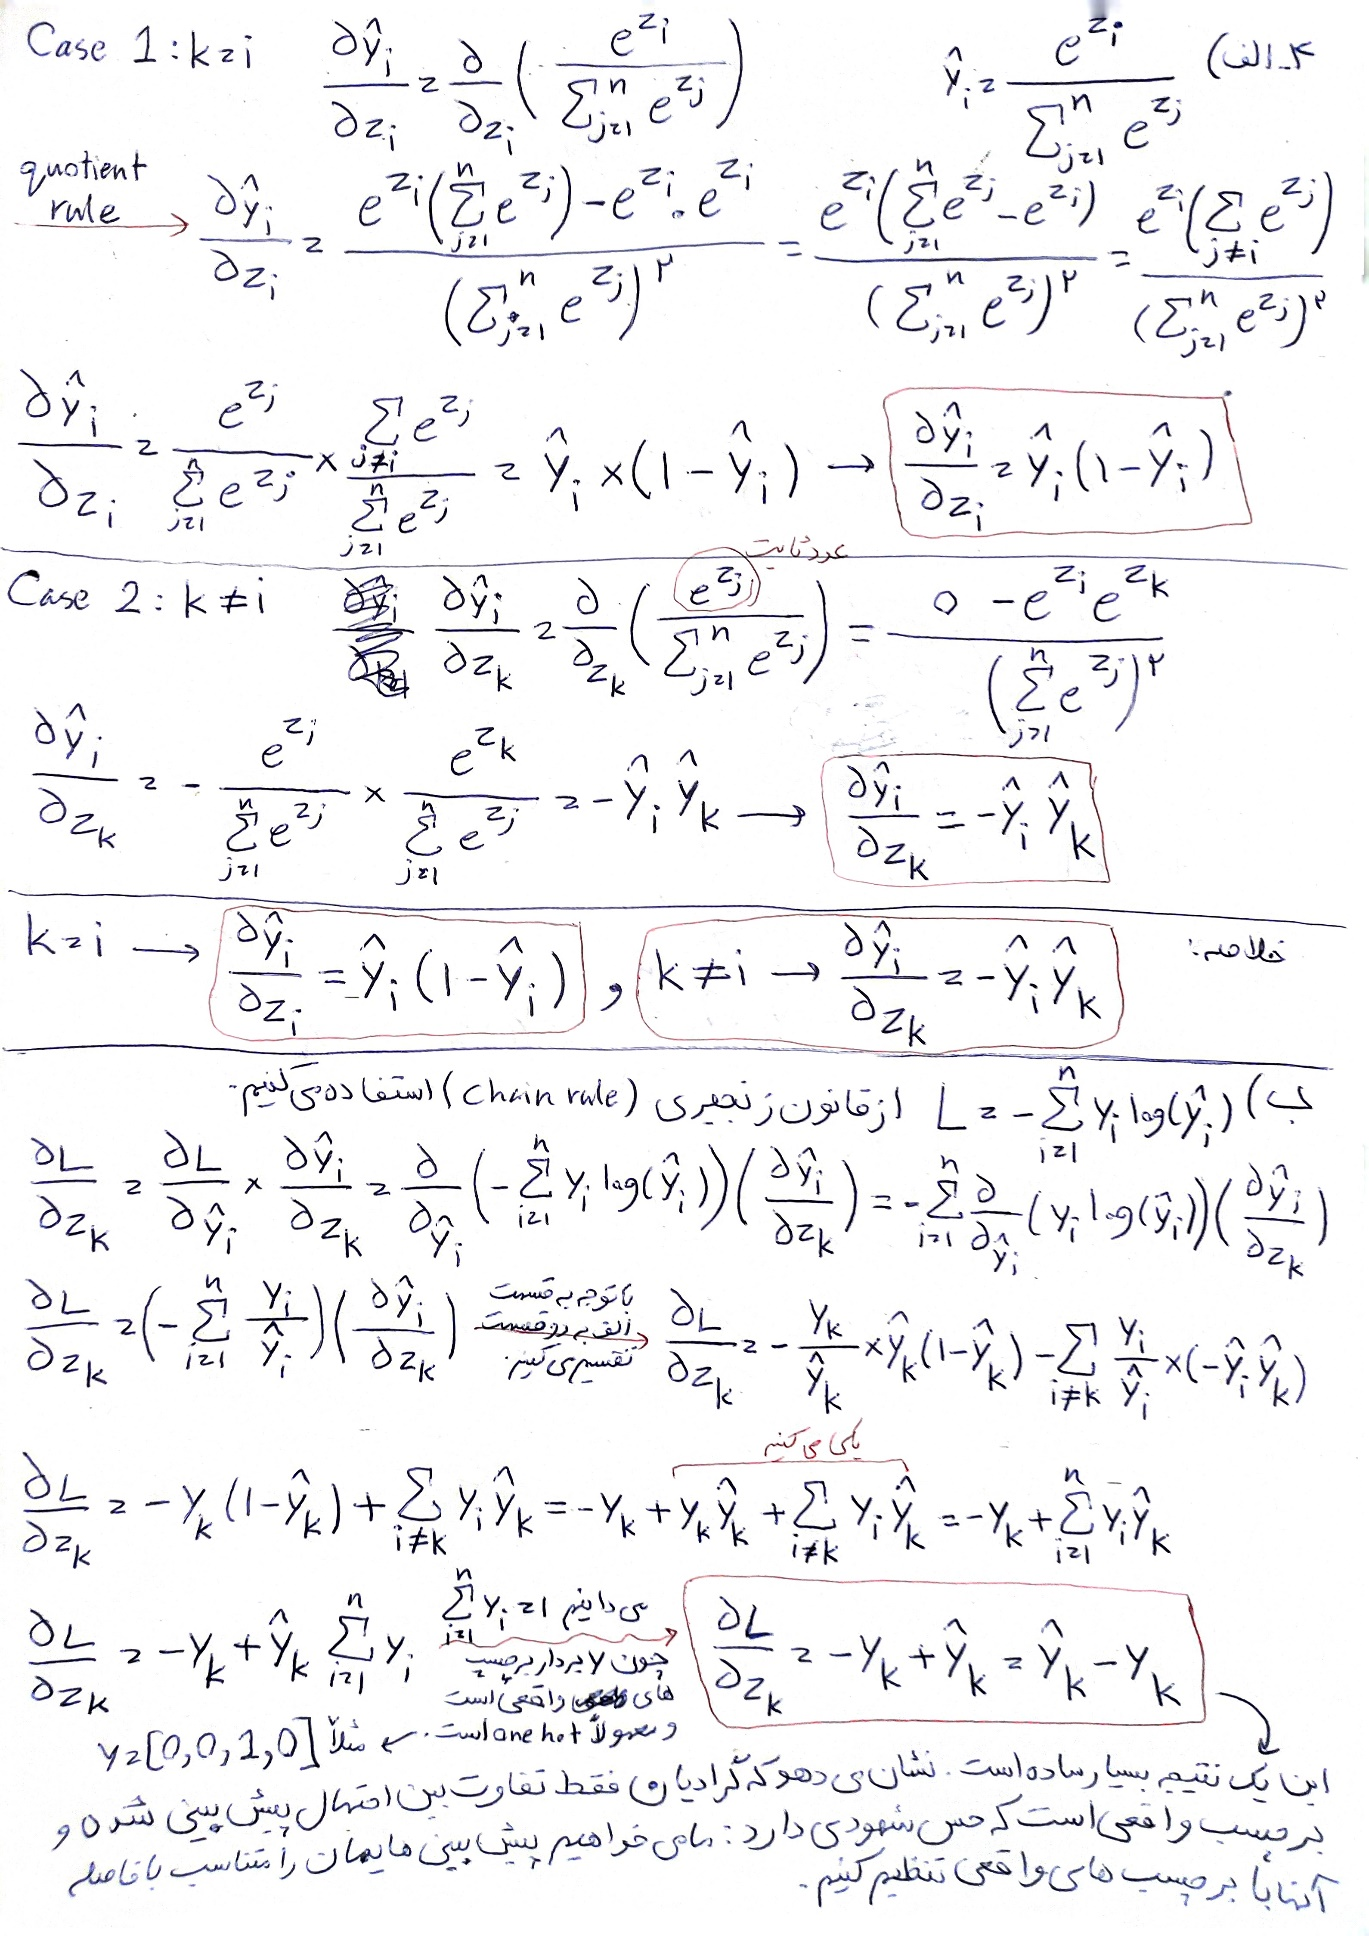 ۴_الف) ŷ_i = e^{z_i} / Σ_{j=1}^{n} e^{z_j}
Case 1: k=i ∂ŷ_i/∂z_i = ∂/∂z_i ( e^{z_i} / Σ_{j=1}^{n} e^{z_j} )
quotient rule → ∂ŷ_i/∂z_i = ( e^{z_i}(Σ_{j=1}^{n} e^{z_j}) - e^{z_i} . e^{z_i} ) / (Σ_{j=1}^{n} e^{z_j})^۲ = e^{z_i}(Σ_{j=1}^{n} e^{z_j} - e^{z_i}) / (Σ_{j=1}^{n} e^{z_j})^۲ = e^{z_i}(Σ_{j≠i} e^{z_j}) / (Σ_{j=1}^{n} e^{z_j})^۲
∂ŷ_i/∂z_i = e^{z_j} / Σ_{j=1}^{n} e^{z_j} × Σ_{j≠i} e^{z_j} / Σ_{j=1}^{n} e^{z_j} = ŷ_i × (1 - ŷ_i) → ∂ŷ_i/∂z_i = ŷ_i (1 - ŷ_i)
عدد ثابت
Case 2: k≠i ∂ŷ_i/∂z_k = ∂/∂z_k ( e^{z_j} / Σ_{j=1}^{n} e^{z_j} ) = ( 0 - e^{z_i} e^{z_k} ) / (Σ_{j=1}^{n} e^{z_j})^۲
∂ŷ_i/∂z_k = - e^{z_j} / Σ_{j=1}^{n} e^{z_j} × e^{z_k} / Σ_{j=1}^{n} e^{z_j} = -ŷ_i ŷ_k → ∂ŷ_i/∂z_k = -ŷ_i ŷ_k
خلاصه:
k=i → ∂ŷ_i/∂z_i = ŷ_i (1 - ŷ_i) , k≠i → ∂ŷ_i/∂z_k = -ŷ_i ŷ_k
ب) L = -Σ_{i=1}^{n} y_i log(ŷ_i) از قانون زنجیری (chain rule) استفاده می‌کنیم.
∂L/∂z_k = ∂L/∂ŷ_i × ∂ŷ_i/∂z_k = ∂/∂ŷ_i (-Σ_{i=1}^{n} y_i log(ŷ_i)) (∂ŷ_i/∂z_k) = -Σ_{i=1}^{n} ∂/∂ŷ_i (y_i log(ŷ_i)) (∂ŷ_i/∂z_k)
∂L/∂z_k = (-Σ_{i=1}^{n} y_i/ŷ_i) (∂ŷ_i/∂z_k) با توجه به قسمت الف به دو قسمت تقسیم می‌کنیم. → ∂L/∂z_k = - y_k/ŷ_k × ŷ_k (1 - ŷ_k) - Σ_{i≠k} y_i/ŷ_i × (-ŷ_i ŷ_k)
یکی می‌کنیم
∂L/∂z_k = -y_k (1 - ŷ_k) + Σ_{i≠k} y_i ŷ_k = -y_k + y_k ŷ_k + Σ_{i≠k} y_i ŷ_k = -y_k + Σ_{i=1}^{n} y_i ŷ_k
∂L/∂z_k = -y_k + ŷ_k Σ_{i=1}^{n} y_i می دانیم Σ_{i=1}^{n} y_i = 1 → ∂L/∂z_k = -y_k + ŷ_k = ŷ_k - y_k
چون y بردار برچسب
های واقعی است
و معمولاً one hot است. ← مثلاً y=[0,0,1,0]
این یک نتیجه بسیار ساده است. نشان می دهد که گرادیان فقط تفاوت بین احتمال پیش بینی شده و
برچسب واقعی است که حس شهودی دارد: ما می خواهیم پیش بینی هایمان را متناسب با فاصله
آنها با برچسب های واقعی تنظیم کنیم.